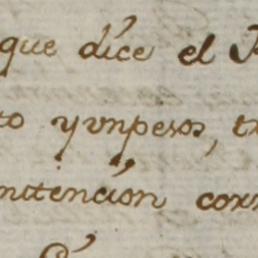 que díce el
to yvnpesos,
nitencion corr